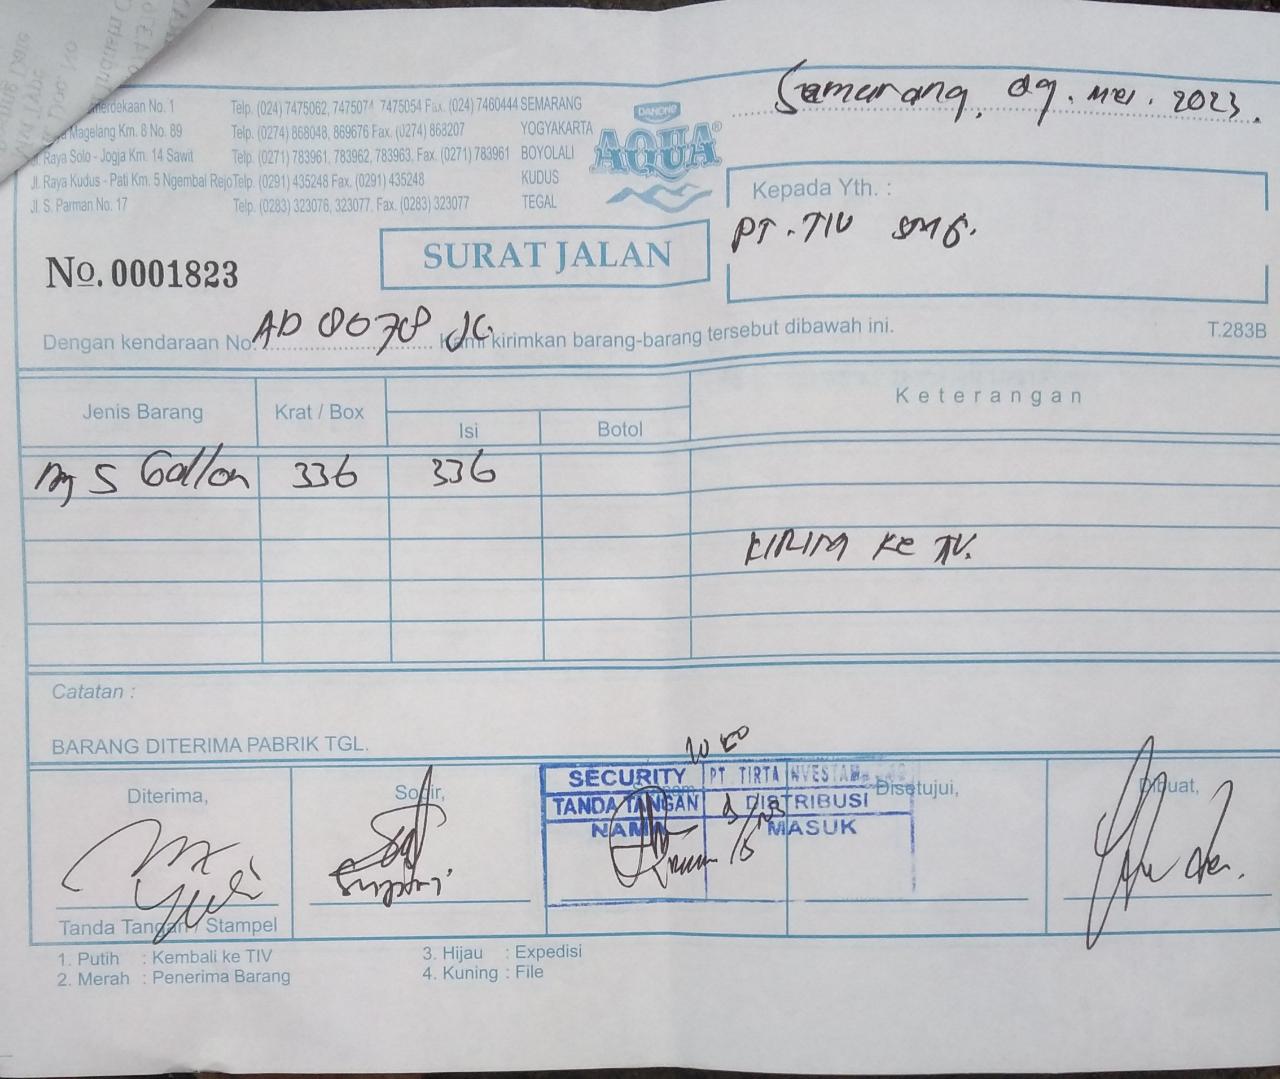 Semarang, 09. Mei. 2023.
Telp. (024) 7475062, 7475074 7475054 Fax. (024) 7460444 SEMARANG
Magelang Km. 8 No. 89 Telp. (0274) 868048, 869676 Fax. (0274) 868207 YOGYAKARTA
Raya Solo - Jogja Km. 14 Sawit Telp. (0271) 783961, 783962, 783963, Fax. (0271) 783961 BOYOLALI
Jl. Raya Kudus - Pati Km. 5 Ngembal Rejo Telp. (0291) 435248 Fax. (0291) 435248 KUDUS
Jl. S. Parman No. 17 Telp. (0283) 323076, 323077, Fax. (0283) 323077 TEGAL
DANONE
AQUA®
Kepada Yth. :
PT. TIV SMG.
No. 0001823
SURAT JALAN
Dengan kendaraan No. AD 8678 JC Kami kirimkan barang-barang tersebut dibawah ini.
T.283B
Jenis Barang Krat / Box Isi Botol Keterangan
5 Gallon 336 336
KIRIM KE TIV.
Catatan :
BARANG DITERIMA PABRIK TGL.
Diterima, Sopir, Disetujui, Dibuat,
SECURITY PT. TIRTA INVESTAMA
TANDA TANGAN DISTRIBUSI
NAMA MASUK
Tanda Tangan / Stampel
1. Putih : Kembali ke TIV
2. Merah : Penerima Barang
3. Hijau : Expedisi
4. Kuning : File